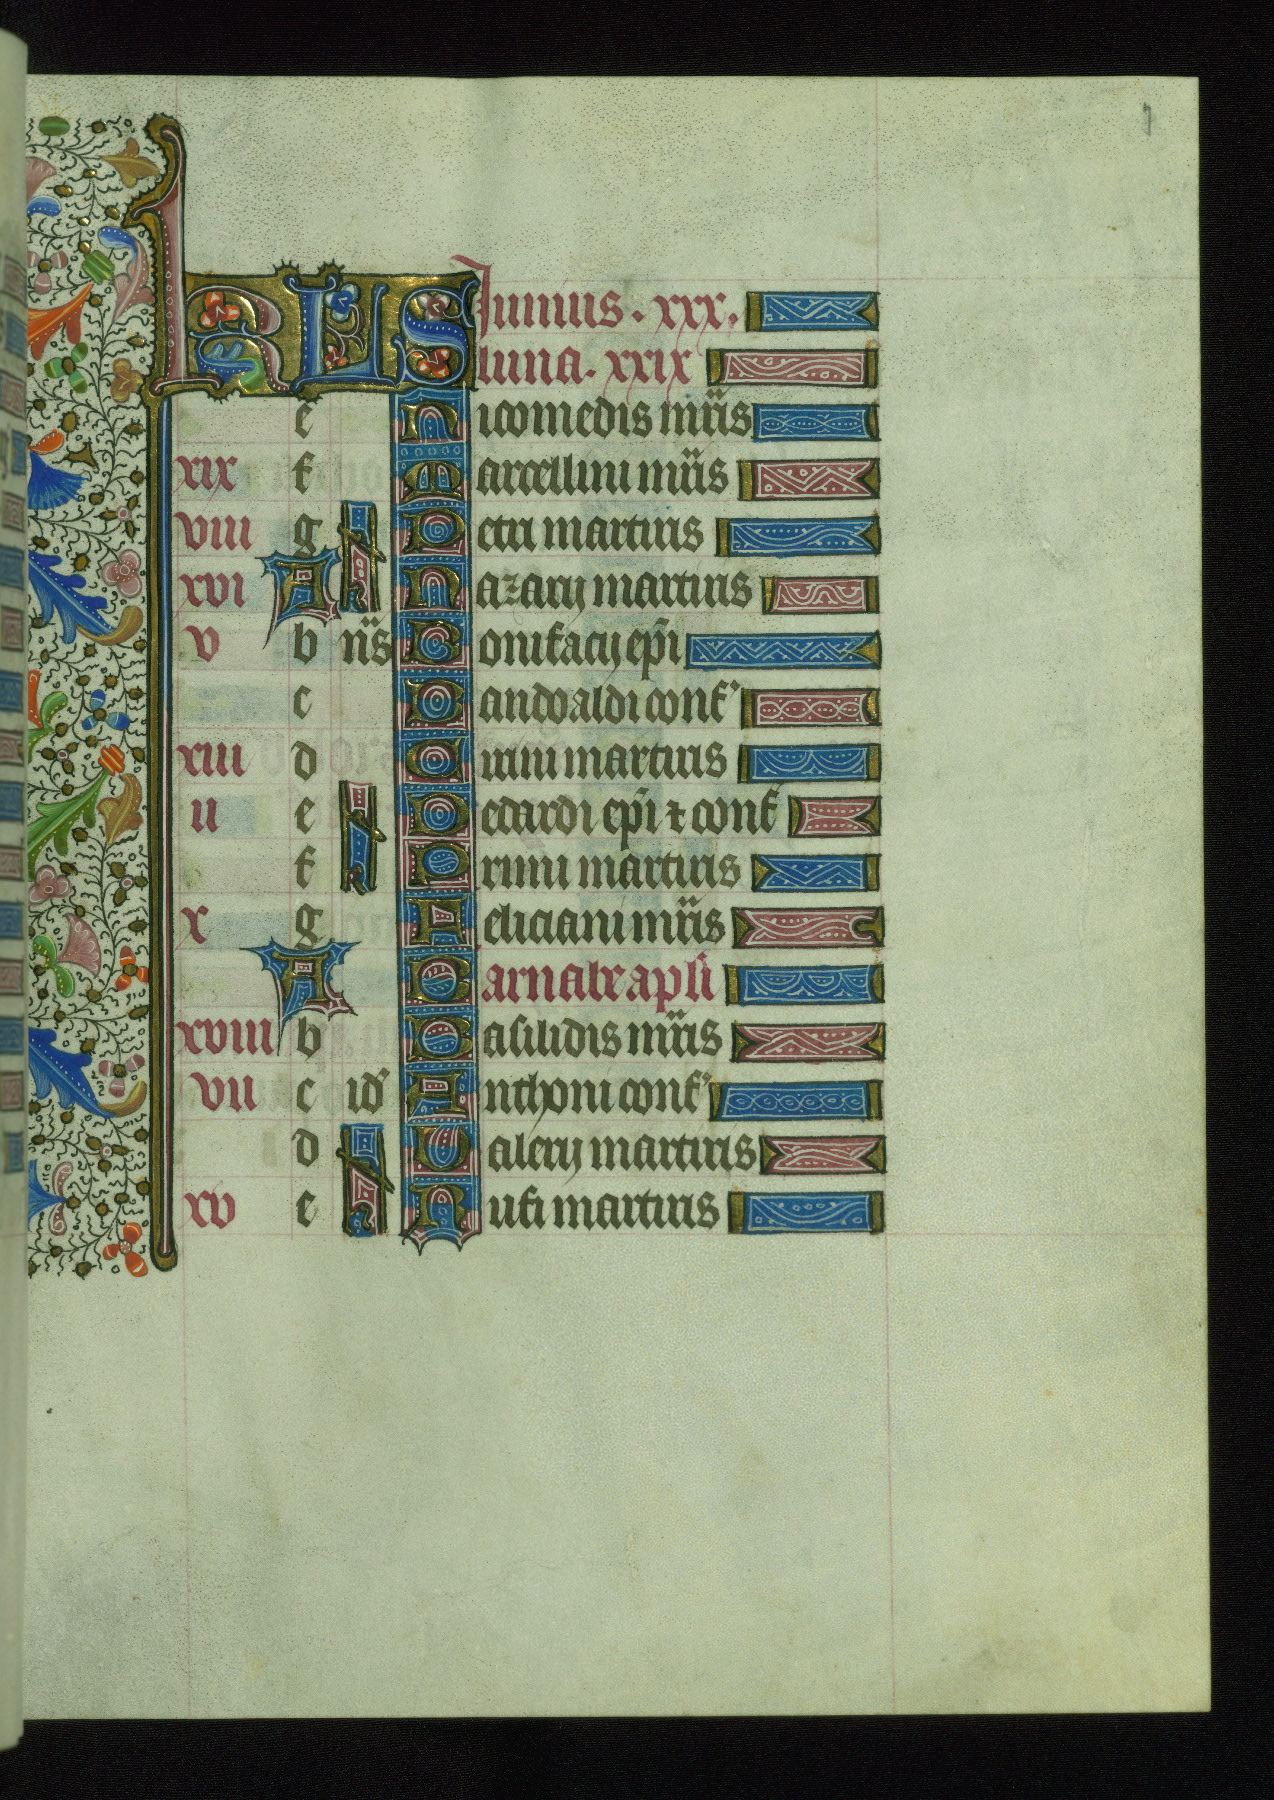 KL Junius. xxx.
luna. xxix
e Nicomedis mr̃is
xix f Marcellini mr̃is
viii g N Petri martiris
xvi A Nazarij martiris
v b nãs Bonifacij ep̃i
c Candoaldi conf̃
xiii d Cirini martiris
ii e N Medardi ep̃i ⁊ conf̃
f Primi martiris
x g Feliciani mr̃is
A Barnabe apl̃i
xviii b Basilidis mr̃is
vii c id̃ Anthoni conf̃
d N Valerij martiris
xv e Rufi martiris